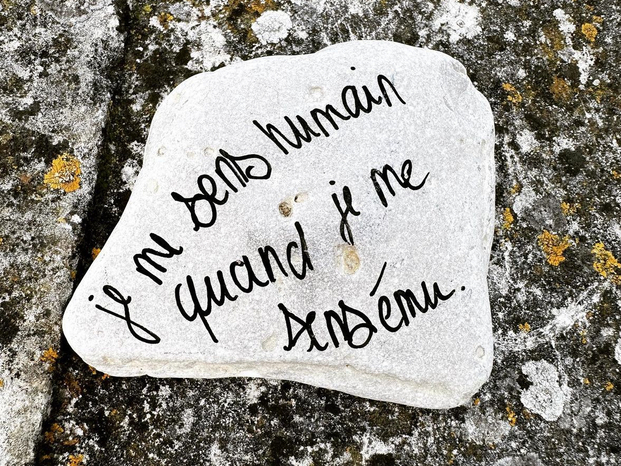 je me sens humain
quand je me
sens ému.